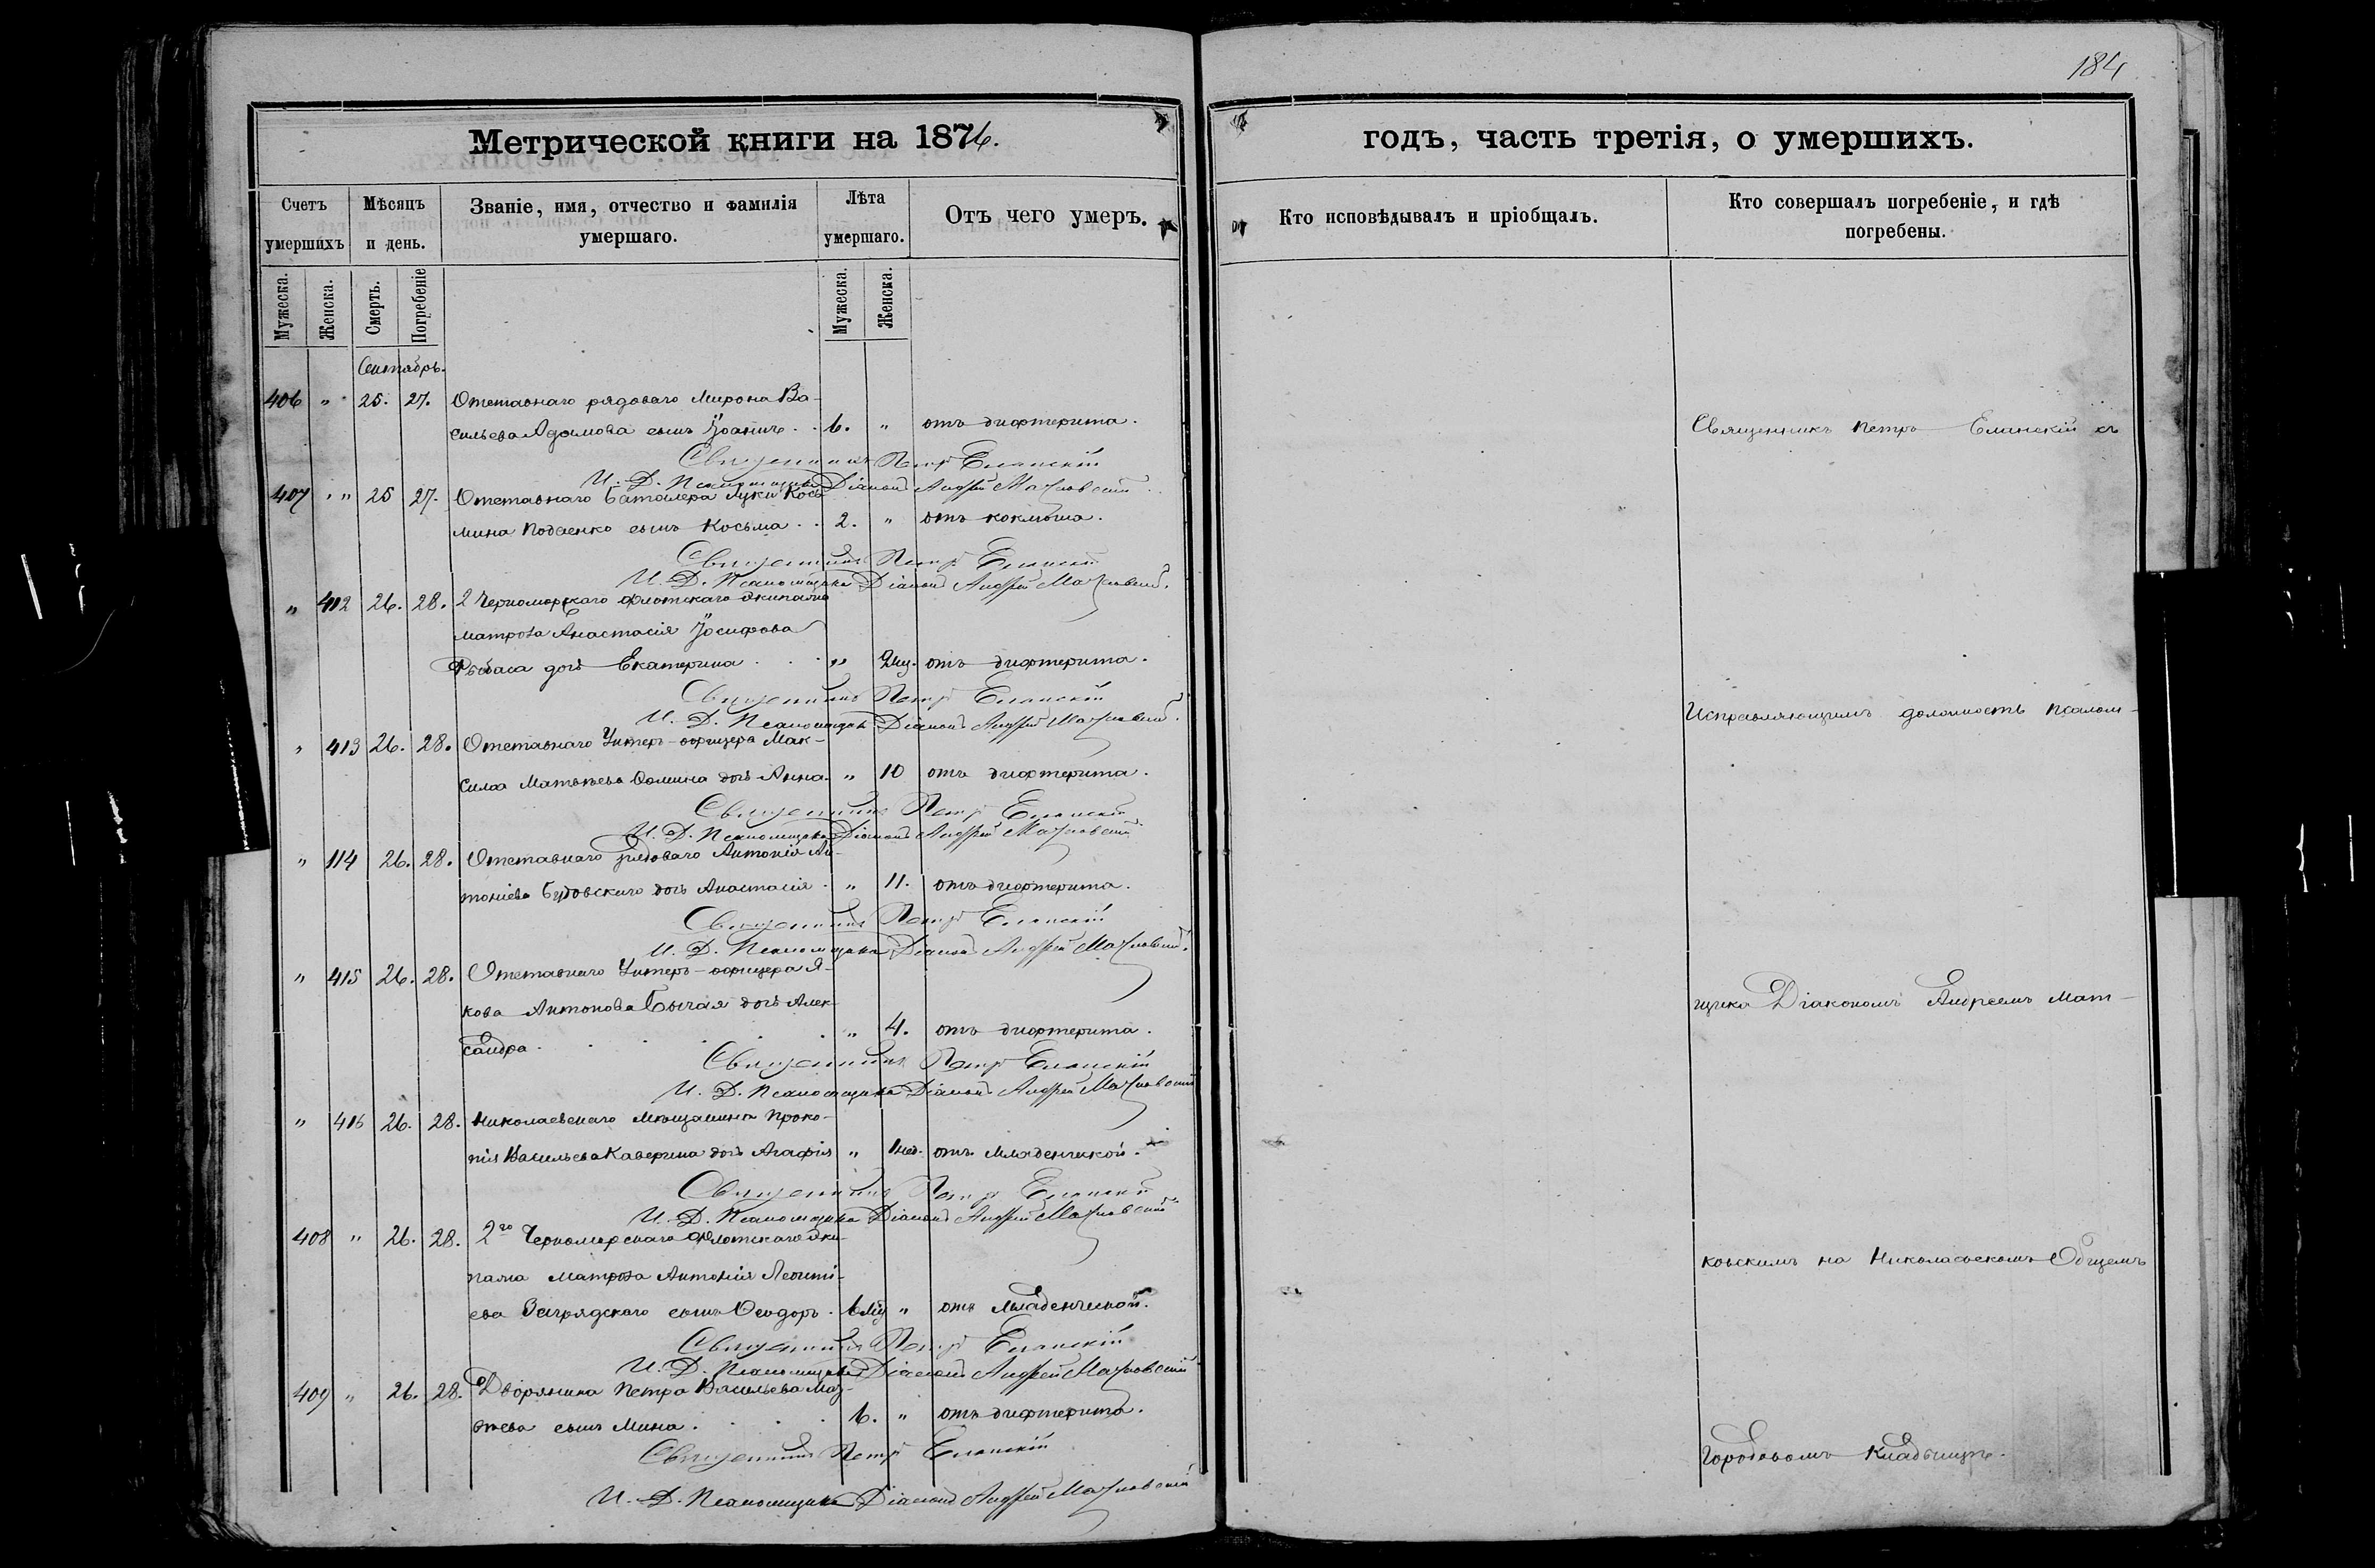 184
Метрической книги на 1876.
годъ, часть третія, о умершихъ.
Счетъ умершихъ
Мѣсяцъ и день.
Званіе, имя, отчество и фамилія умершаго.
Лѣта умершаго.
Отъ чего умеръ.
Кто исповѣдывалъ и пріобщалъ.
Кто совершалъ погребеніе, и гдѣ погребены.
Мужеска.
Женска.
Смерть.
Погребеніе
Мужеска.
Женска.
Сентябрь.
406 " 25. 27. Отставнаго рядоваго Мирона Ва-
сильева Адамова сынъ Іоаннъ . . 6. " отъ дифтерита.
Священникъ Петръ Еланскій
И. Д. Псаломщика Діаконъ Андрей
407 " 25 27. Отставнаго Баталера Луки Кось-
мина сынъ Косьма . . 2. " отъ коклюша.
Священникъ Петръ Еланскій
И. Д. Псаломщика Діаконъ Андрей
" 412 26. 28. 2 Черноморскаго флотскаго экипажа
матроса Анастасія Іосифова
дочь Екатерина . . . " 2 мц. отъ дифтерита.
Священникъ Петръ Еланскій
И. Д. Псаломщика Діаконъ Андрей
" 413 26. 28. Отставнаго Унтеръ-офицера Мак-
сима Матвѣева Ѳомина дочь Анна " 10 отъ дифтерита.
Священникъ Петръ Еланскій
И. Д. Псаломщика Діаконъ Андрей
" 114 26. 28. Отставнаго рядоваго Антонія Ан-
тоніева дочь Анастасія . " 11. отъ дифтерита.
Священникъ Петръ Еланскій
И. Д. Псаломщика Діаконъ Андрей
" 415 26. 28. Отставнаго Унтеръ-офицера Я-
кова Антонова Бычая дочь Алек-
сандра . . . . . " 4. отъ дифтерита.
Священникъ Петръ Еланскій
И. Д. Псаломщика Діаконъ Андрей
" 416 26. 28. Николаевскаго мѣщанина Проко-
пія Васильева Каверина дочь Агафія " 1 нед. отъ младенческой.
Священникъ Петръ Еланскій
И. Д. Псаломщика Діаконъ Андрей
408 " 26. 28. 2го Черноморскаго флотскаго эки-
пажа матроса Антонія Леонті-
ева Загрядскаго сынъ Ѳеодоръ . 6 мц " отъ младенческой.
Священникъ Петръ Еланскій
И. Д. Псаломщика Діаконъ Андрей
409 " 26. 28. Дворянина Петра Васильева
сынъ Мина . . . . 6. " отъ дифтерита.
Священникъ Петръ Еланскій
И. Д. Псаломщика Діаконъ Андрей
Священникъ Петръ Еланскій съ
Исправляющимъ должность псалом-
щика Діакономъ Андреемъ
ковскимъ на Николаевскомъ Общемъ
Городовомъ Кладбищѣ.